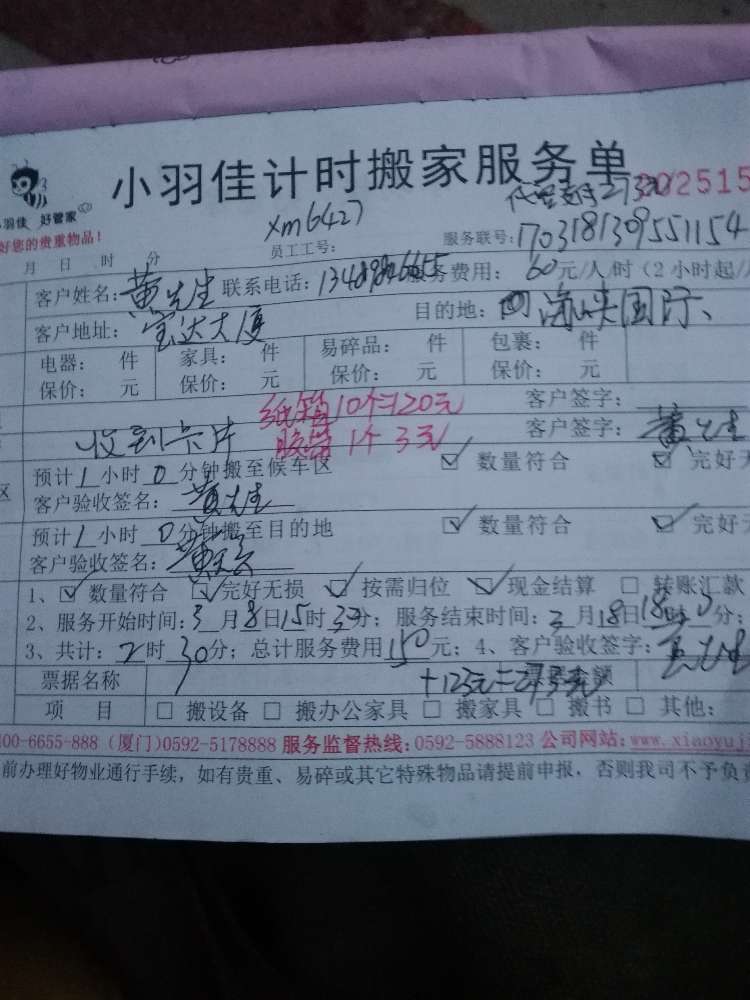 小羽佳计时搬家服务单
代垫支付273元 002515
小羽佳 好管家
好您的贵重物品！
xm6427
员工工号： 服务联号：17031813095511​54
月 日 时 分
客户姓名：黄先生 联系电话： 服务费用：60元/人/时（2小时起/
客户地址：宝达大厦 目的地： 海峡国际、
电器： 件 家具： 件 易碎品： 件 包裹： 件
保价： 元 保价： 元 保价： 元 保价： 元
纸箱10个120元 客户签字：
收到卡片 胶带1个3元 客户签字：黄先生
预计1小时0分钟搬至候车区 ☑数量符合 ☑完好无
区 客户验收签名：黄先生
预计1小时0分钟搬至目的地 ☑数量符合 ☑完好无
客户验收签名：黄先生
1、☑数量符合 ☑完好无损 ☑按需归位 ☑现金结算 □转账汇款
2、服务开始时间：3月18日15时30分；服务结束时间：3月18日18时0分；
3、共计：2时30分；总计服务费用150元；4、客户验收签字：黄先生
票据名称 +123元=273元
项 目 □搬设备 □搬办公家具 □搬家具 □搬书 □其他：
00-6655-888（厦门）0592-5178888 服务监督热线：0592-5888123 公司网站：www.xiaoyuj
前办理好物业通行手续，如有贵重、易碎或其它特殊物品请提前申报，否则我司不予负责